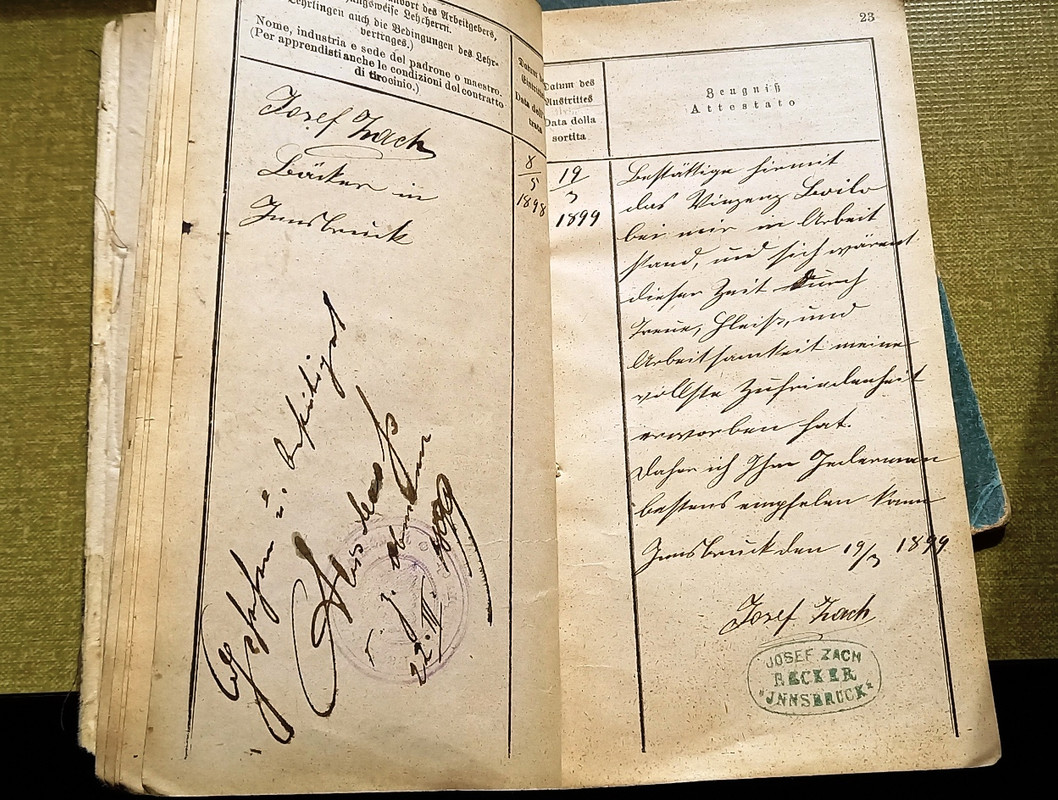 ungsweise Lehrherrn.
Lehrlingen auch die Bedingungen des Lehr-
vertrages.)
Nome, industria e sede del padrone o maestro.
(Per apprendisti anche le condizioni del contratto
di tirocinio.)
Josef Zach
Bäcker in
Innsbruck
Gesehen u. bestätiget
Datum des
Data dell'
trata
8
5
1898
23
Datum des
Austrittes
Data della
sortita
19
3
1899
Zeugniß
Attestato
Bestättige hiermit
das Vinzenz
bei mir in Arbeit
stand, und sich wärent
dieser Zeit durch
Treue, Fleiß, und
Arbeitsamkeit meine
vollste Zufriedenheit
erworben hat.
Daher ich Ihm Jederman
bestens empfelen kann
Innsbruck den 19/3 1899
Josef Zach
JOSEF ZACH
BECKER
"INNSBRUCK"